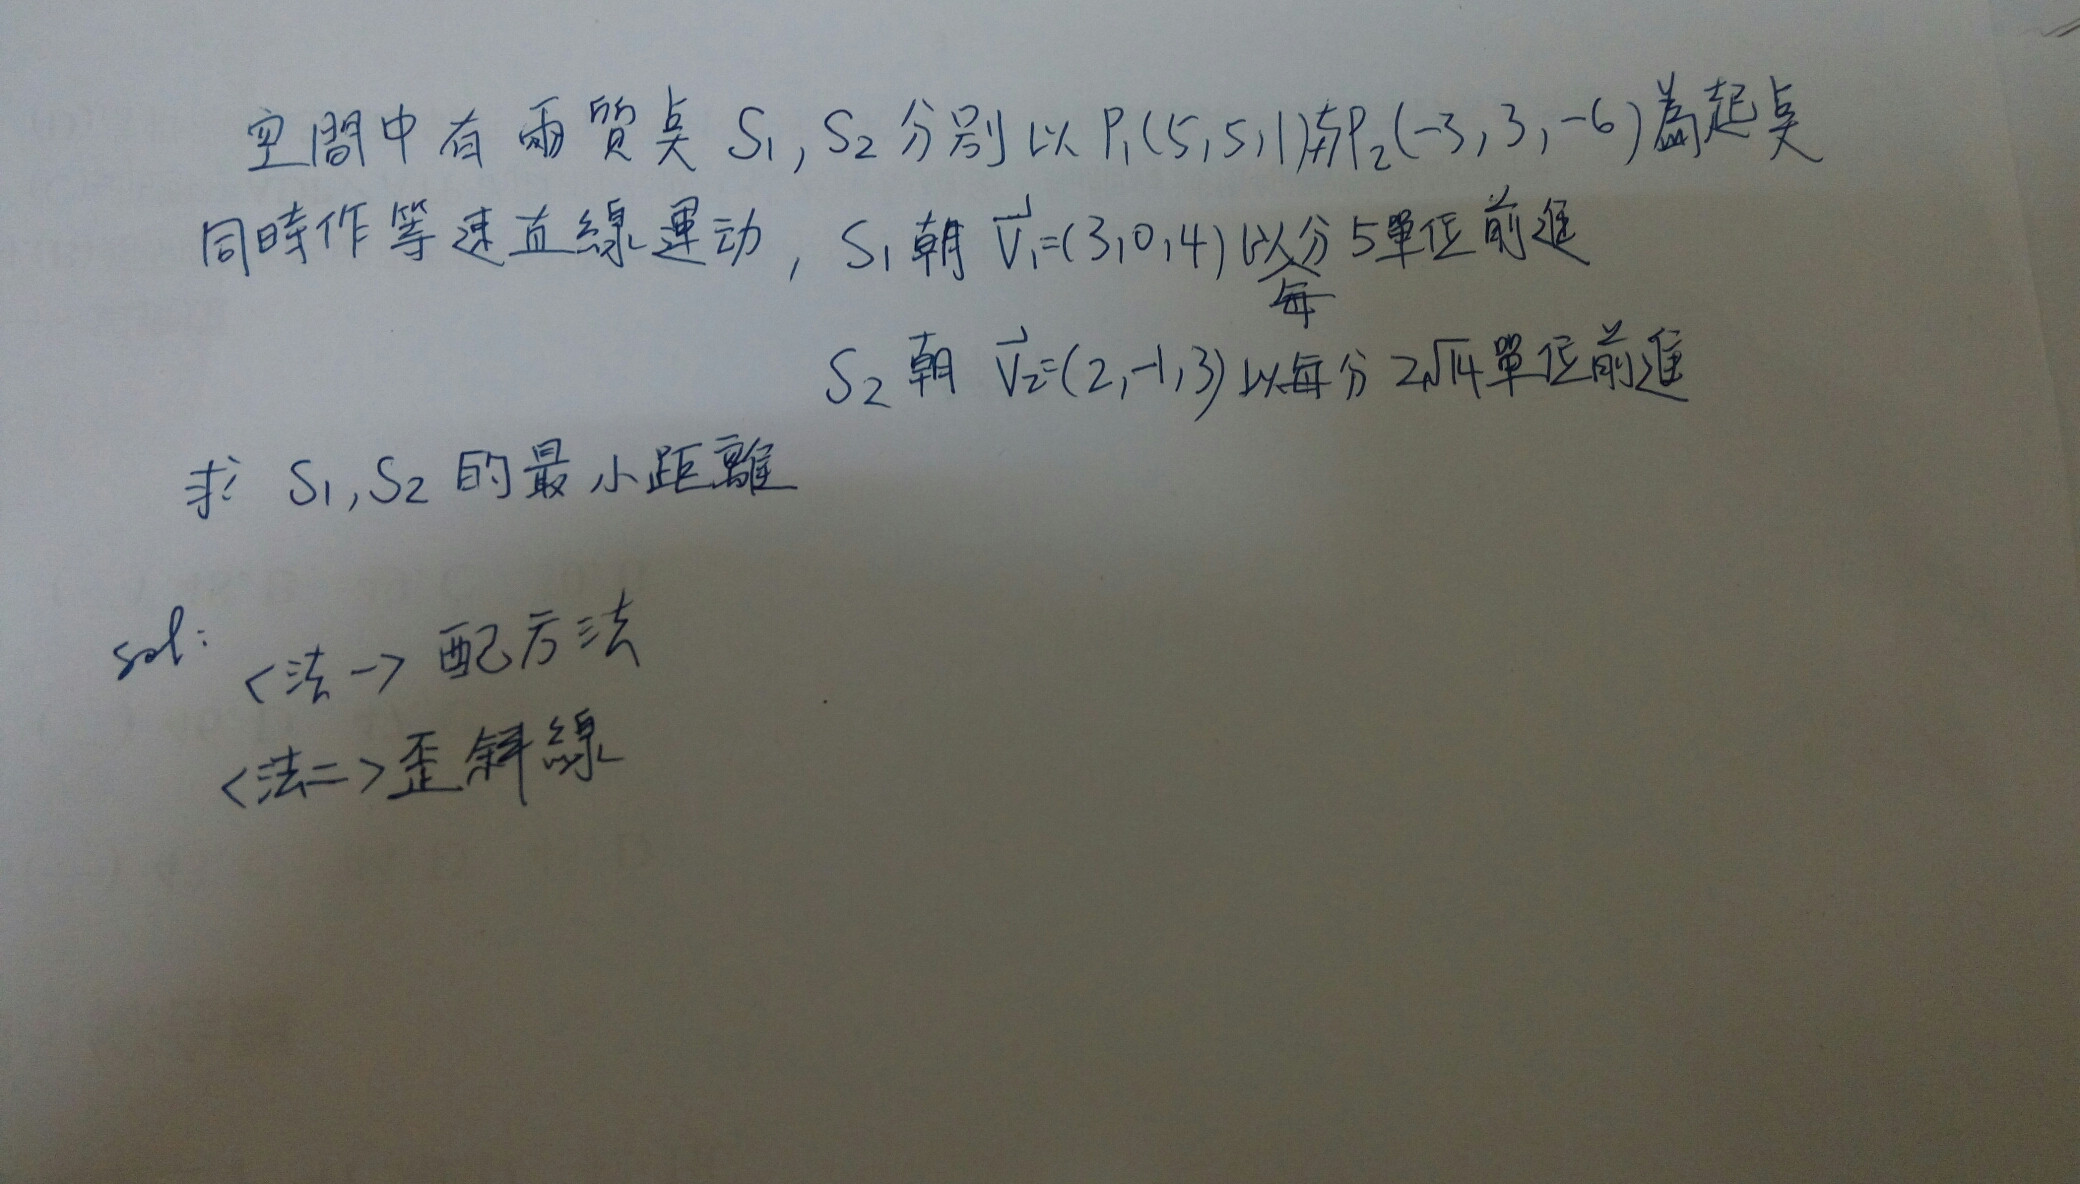 空間中有兩質点 S₁, S₂ 分別以 P₁(5,5,1)與P₂(-3,3,-6)為起点
同時作等速直線運动, S₁ 朝 V₁=(3,0,4) 以每分 5單位前進
S₂ 朝 V₂=(2,-1,3) 以每分 2√14 單位前進
求 S₁, S₂ 的最小距離
sol: <法一> 配方法
<法二> 歪斜線